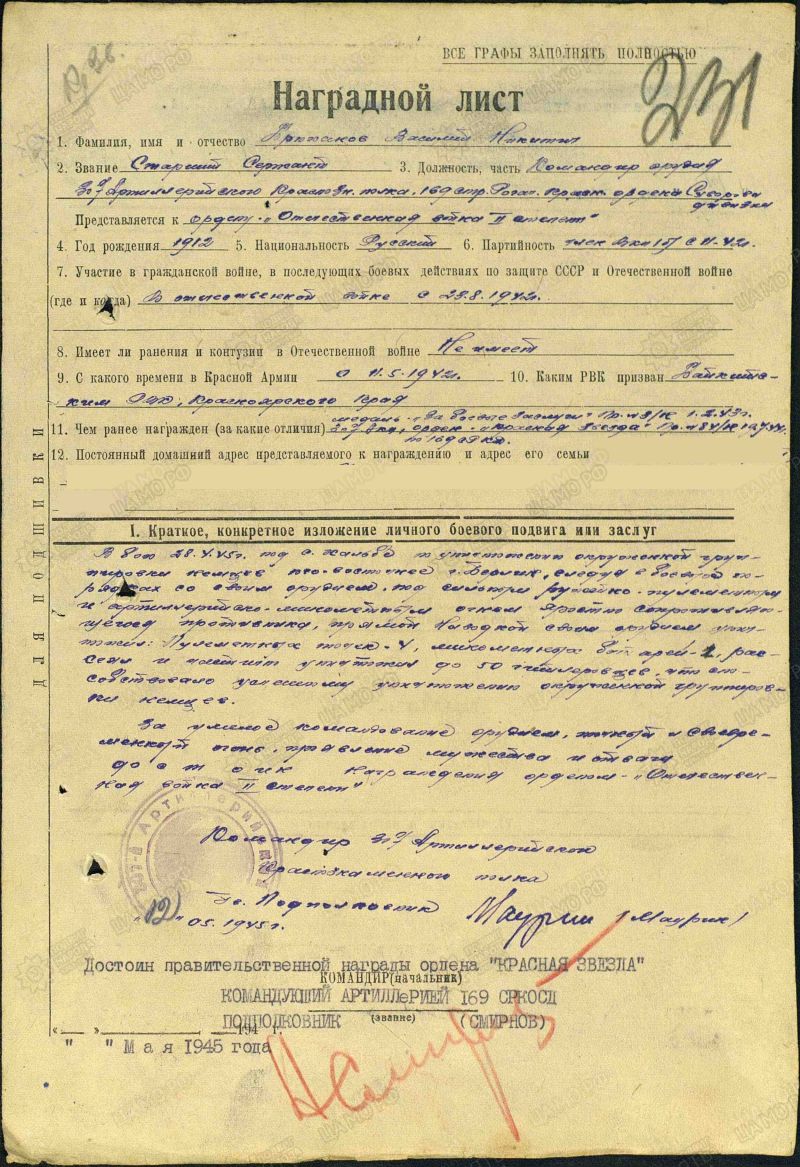 ВСЕ ГРАФЫ ЗАПОЛНЯТЬ ПОЛНОСТЬЮ
231
Наградной лист
1. Фамилия, имя и отчество Василий Никитич
2. Звание Старший Сержант 3. Должность, часть Командир орудия
307 Артиллерийского Краснозн. полка, 169 стр. Рогач. красн. ордена Суворова
дивизии
Представляется к ордену „Отечественная война II степени"
4. Год рождения 1912 5. Национальность Русский 6. Партийность член ВКП(б) с 11-42г.
7. Участие в гражданской войне, в последующих боевых действиях по защите СССР и Отечественной войне
(где и когда) В отечественной войне с 23.8.1942г.
8. Имеет ли ранения и контузии в Отечественной войне Не имеет
9. С какого времени в Красной Армии с 11.5.1942г. 10. Каким РВК призван Байкитс-
ким РВК, Красноярского края
медаль „За боевые заслуги" Пр. 1.2.43г.
11. Чем ранее награжден (за какие отличия) орден „Красная звезда" Пр.
по 169 скд.
12. Постоянный домашний адрес представляемого к награждению и адрес его семьи
ДЛЯ ПОДШИВКИ
I. Краткое, конкретное изложение личного боевого подвига или заслуг
В бою 28.4.45г. под с. Хальбе по уничтожению окруженной груп-
пировки немцев юго-восточнее г. Берлин, следуя в боевых по-
рядках со своим орудием, под сильным ружейно-пулеметным
и артиллерийско-минометным огнем яростно сопротивляю-
щегося противника, прямой наводкой своим орудием унич-
тожил: Пулеметных точек-4, минометных батарей-1, рас-
сеял и частично уничтожил до 50 гитлеровцев, что спо-
собствовало успешному уничтожению окруженной группиров-
ки немцев.
За умелое командование орудием, точный и своевре-
менный огонь, проявление мужества и отваги
достоин награждения орденом - „Отечествен-
ная война II степени"
Командир 307 Артиллерийского
Краснознаменного полка
Гв. Подполковник Маурин (Маурин)
„12" 05.1945г.
Достоин правительственной награды ордена "КРАСНАЯ ЗВЕЗЛА"
КОМАНДИР (начальник)
КОМАНДУЮЩИЙ АРТИЛЛеРИЕЙ 169 СРКОСД
ПОДПОЛКОВНИК (звание) (СМИРНОВ)
«__» ________ 194 г.
" " Мая 1945 года